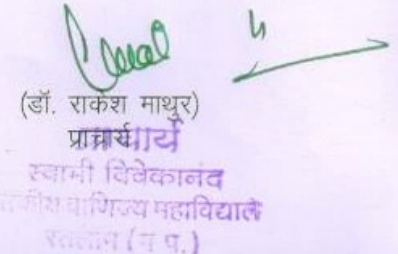 (डॉ. राकेश माथुर)
प्राचार्य
प्राचार्य
स्वामी विवेकानंद
वाणिज्य महाविद्यालय
रतलाम (म.प.)